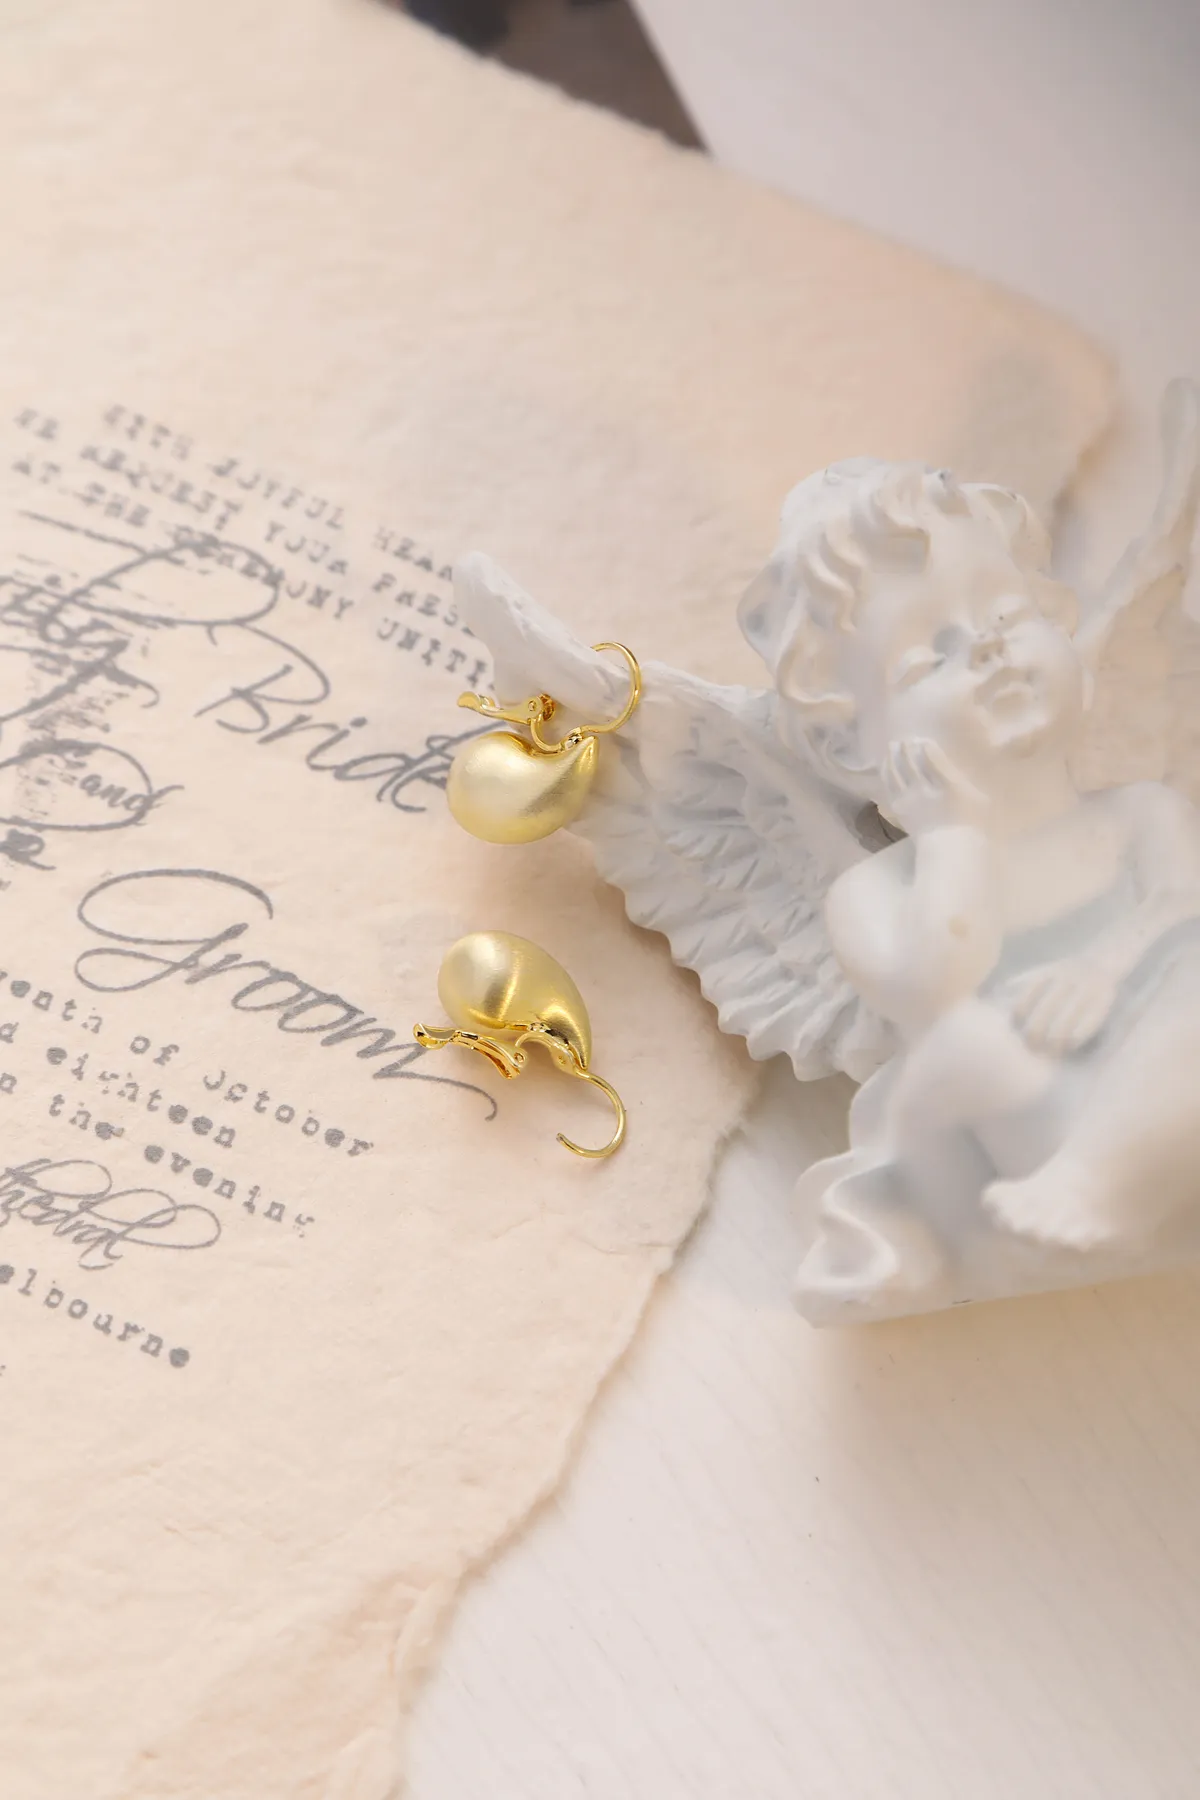 WITH JOYFUL HEAR
WE REQUEST YOUR PRES
AT THE CEREMONY UNITI
Bride
and
Groom
venth of October
d eighteen
n the evening
thedral
elbourne